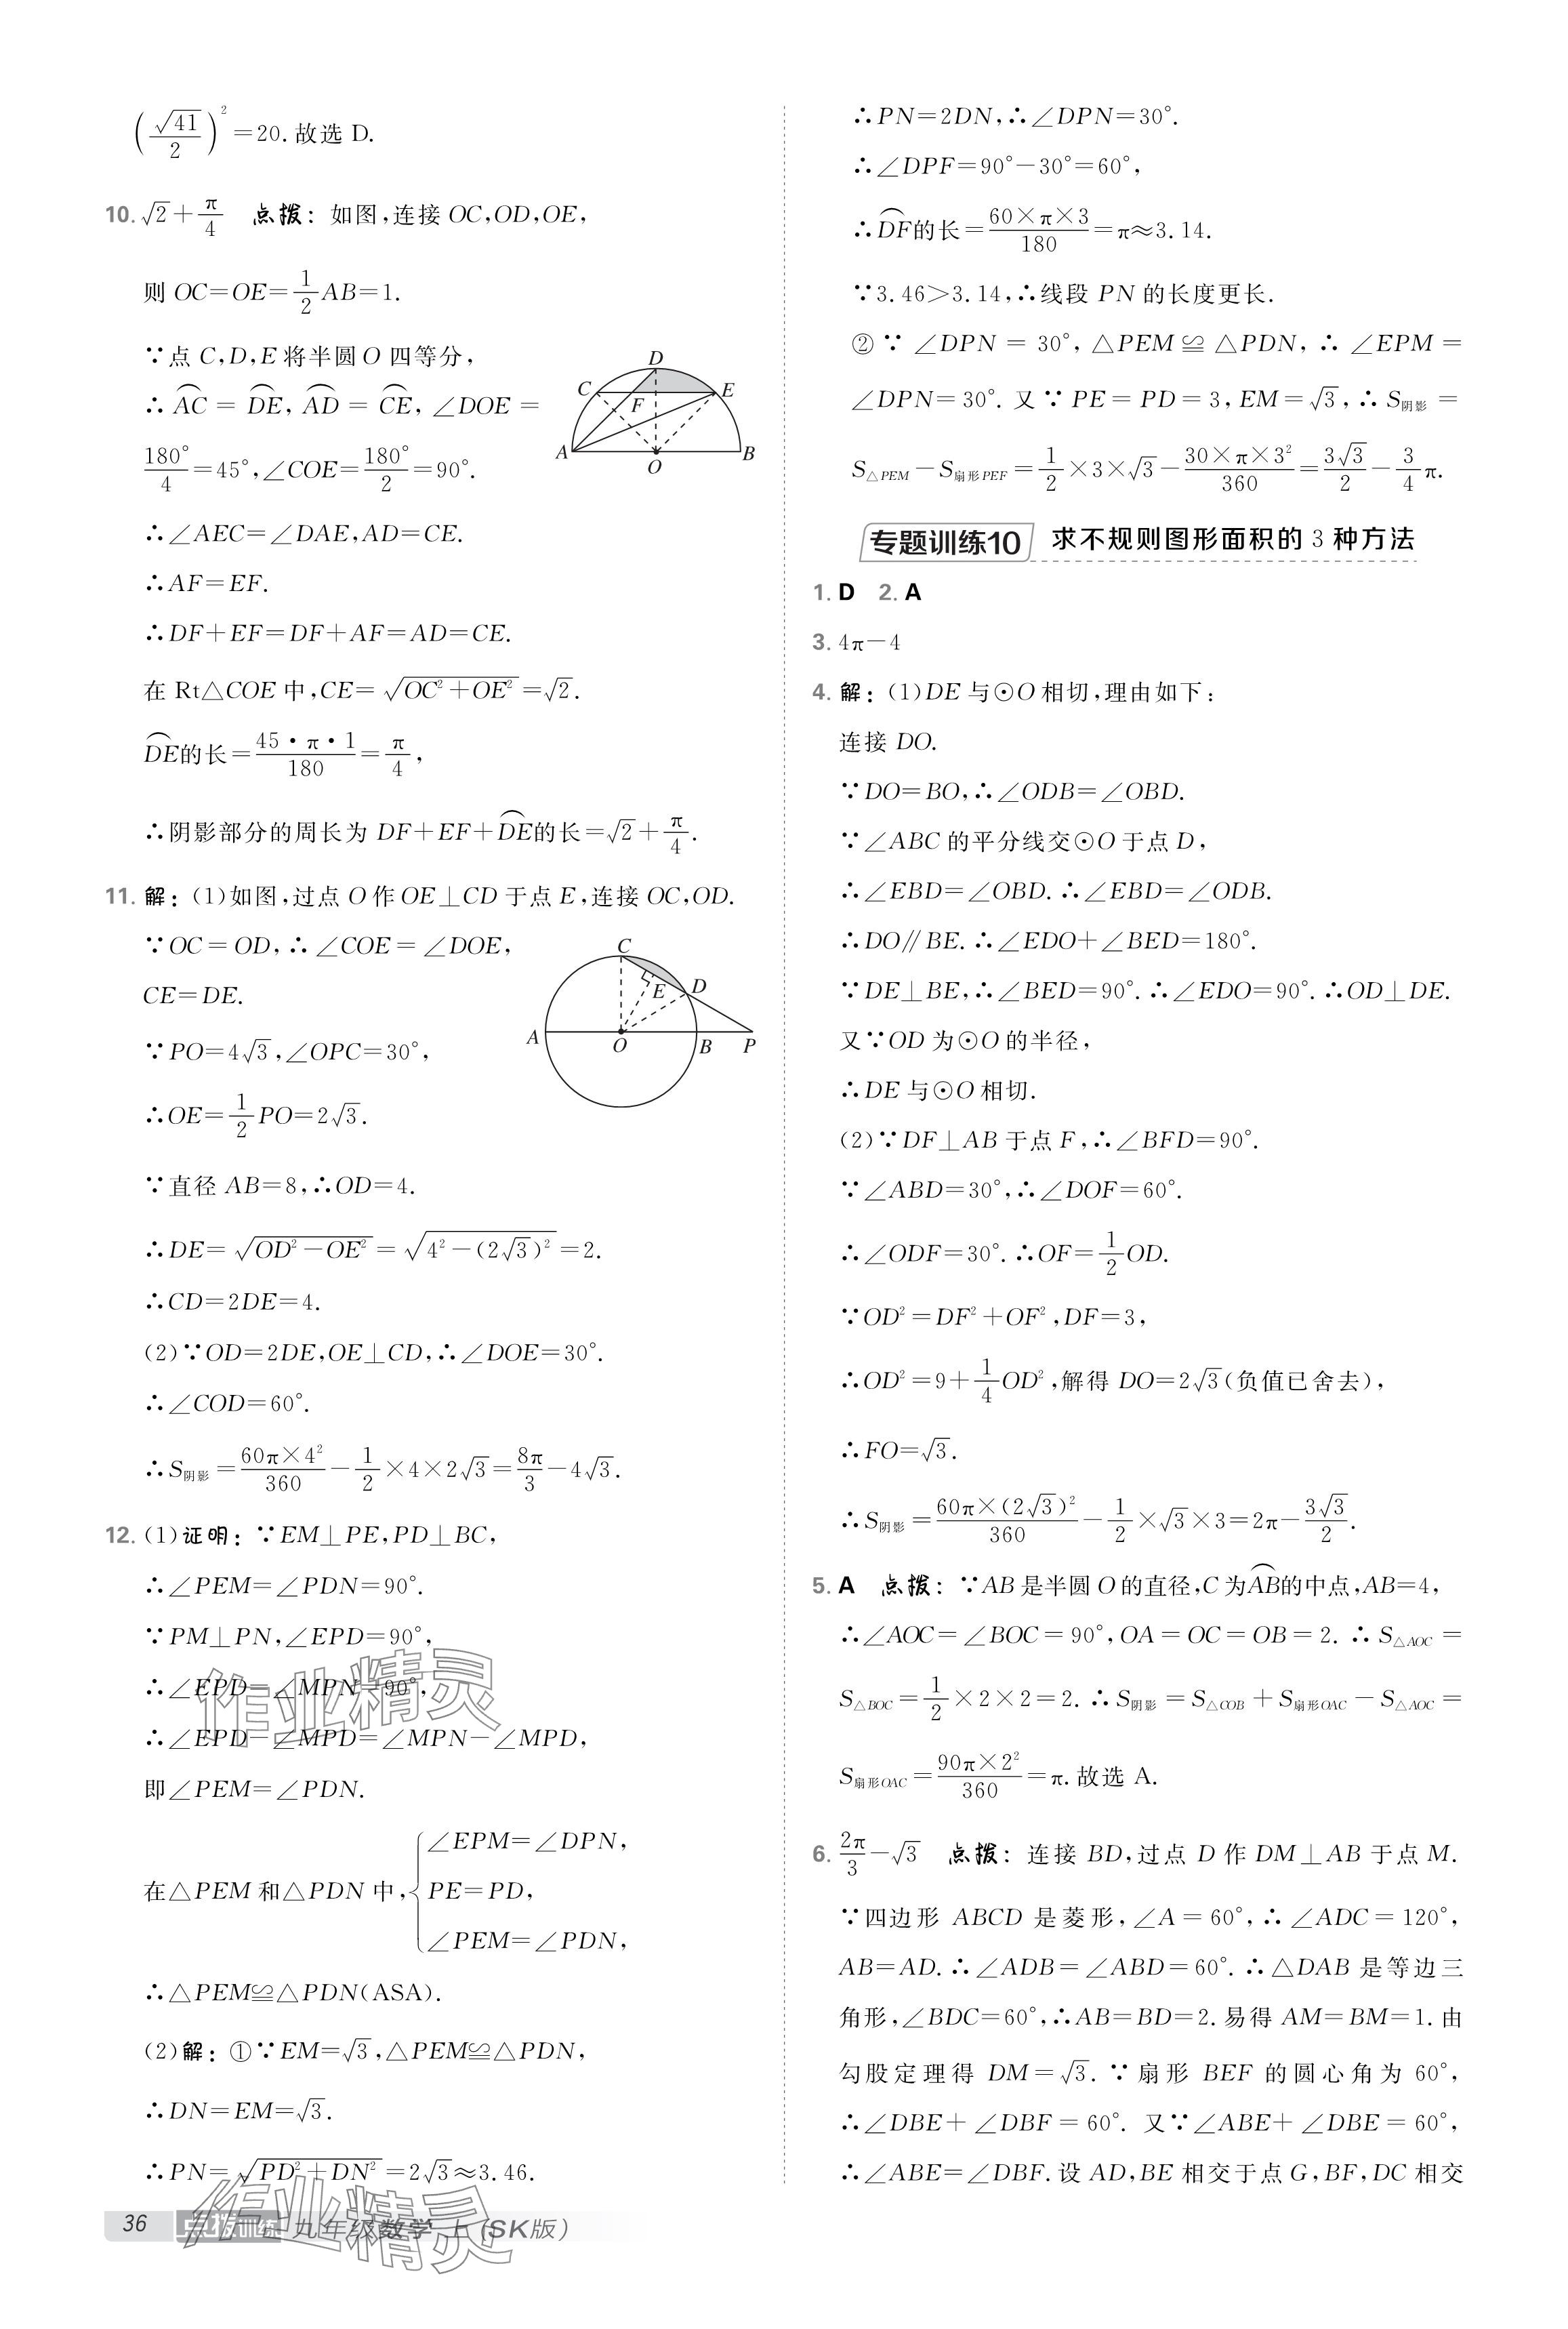 (√41/2)²=20.故选 D.
10. √2+π/4 点拨：如图,连接 OC,OD,OE,
则 OC=OE=1/2AB=1.
∵点 C,D,E 将半圆 O 四等分,
∴AC⌒=DE⌒,AD⌒=CE⌒,∠DOE=
180°/4=45°,∠COE=180°/2=90°.
∴∠AEC=∠DAE,AD=CE.
∴AF=EF.
∴DF+EF=DF+AF=AD=CE.
在 Rt△COE 中,CE=√(OC²+OE²)=√2.
DE⌒的长=45·π·1/180=π/4,
∴阴影部分的周长为 DF+EF+DE⌒的长=√2+π/4.
D
C
E
F
A
O
B
11. 解：(1)如图,过点 O 作 OE⊥CD 于点 E,连接 OC,OD.
∵OC=OD,∴∠COE=∠DOE,
CE=DE.
∵PO=4√3,∠OPC=30°,
∴OE=1/2PO=2√3.
C
D
E
A
O
B
P
∵直径 AB=8,∴OD=4.
∴DE=√(OD²-OE²)=√(4²-(2√3)²)=2.
∴CD=2DE=4.
(2)∵OD=2DE,OE⊥CD,∴∠DOE=30°.
∴∠COD=60°.
∴S阴影=60π×4²/360-1/2×4×2√3=8π/3-4√3.
12. (1)证明：∵EM⊥PE,PD⊥BC,
∴∠PEM=∠PDN=90°.
∵PM⊥PN,∠EPD=90°,
∴∠EPD=∠MPN=90°,
∴∠EPD-∠MPD=∠MPN-∠MPD,
即∠PEM=∠PDN.
∠EPM=∠DPN,
在△PEM 和△PDN 中,{PE=PD,
∠PEM=∠PDN,
∴△PEM≌△PDN(ASA).
(2)解：①∵EM=√3,△PEM≌△PDN,
∴DN=EM=√3.
∴PN=√(PD²+DN²)=2√3≈3.46.
∴PN=2DN,∴∠DPN=30°.
∴∠DPF=90°-30°=60°,
∴DF⌒的长=60×π×3/180=π≈3.14.
∵3.46>3.14,∴线段 PN 的长度更长.
②∵∠DPN=30°,△PEM≌△PDN,∴∠EPM=
∠DPN=30°.又∵PE=PD=3,EM=√3,∴S阴影=
S△PEM-S扇形PEF=1/2×3×√3-30×π×3²/360=3√3/2-3/4π.
专题训练10 求不规则图形面积的 3 种方法
1. D 2. A
3. 4π-4
4. 解：(1)DE 与⊙O 相切,理由如下：
连接 DO.
∵DO=BO,∴∠ODB=∠OBD.
∵∠ABC 的平分线交⊙O 于点 D,
∴∠EBD=∠OBD.∴∠EBD=∠ODB.
∴DO∥BE.∴∠EDO+∠BED=180°.
∵DE⊥BE,∴∠BED=90°.∴∠EDO=90°.∴OD⊥DE.
又∵OD 为⊙O 的半径,
∴DE 与⊙O 相切.
(2)∵DF⊥AB 于点 F,∴∠BFD=90°.
∵∠ABD=30°,∴∠DOF=60°.
∴∠ODF=30°.∴OF=1/2OD.
∵OD²=DF²+OF²,DF=3,
∴OD²=9+1/4OD²,解得 DO=2√3(负值已舍去),
∴FO=√3.
∴S阴影=60π×(2√3)²/360-1/2×√3×3=2π-3√3/2.
5. A 点拨：∵AB 是半圆 O 的直径,C 为AB⌒的中点,AB=4,
∴∠AOC=∠BOC=90°,OA=OC=OB=2.∴S△AOC=
S△BOC=1/2×2×2=2.∴S阴影=S△COB+S扇形OAC-S△AOC=
S扇形OAC=90π×2²/360=π.故选 A.
6. 2π/3-√3 点拨：连接 BD,过点 D 作 DM⊥AB 于点 M.
∵四边形 ABCD 是菱形,∠A=60°,∴∠ADC=120°,
AB=AD.∴∠ADB=∠ABD=60°.∴△DAB 是等边三
角形,∠BDC=60°,∴AB=BD=2.易得 AM=BM=1.由
勾股定理得 DM=√3.∵扇形 BEF 的圆心角为 60°,
∴∠DBE+∠DBF=60°.又∵∠ABE+∠DBE=60°,
∴∠ABE=∠DBF.设 AD,BE 相交于点 G,BF,DC 相交
作业精灵
作业精灵
36 点拨训练 九年级数学 上(SK版)